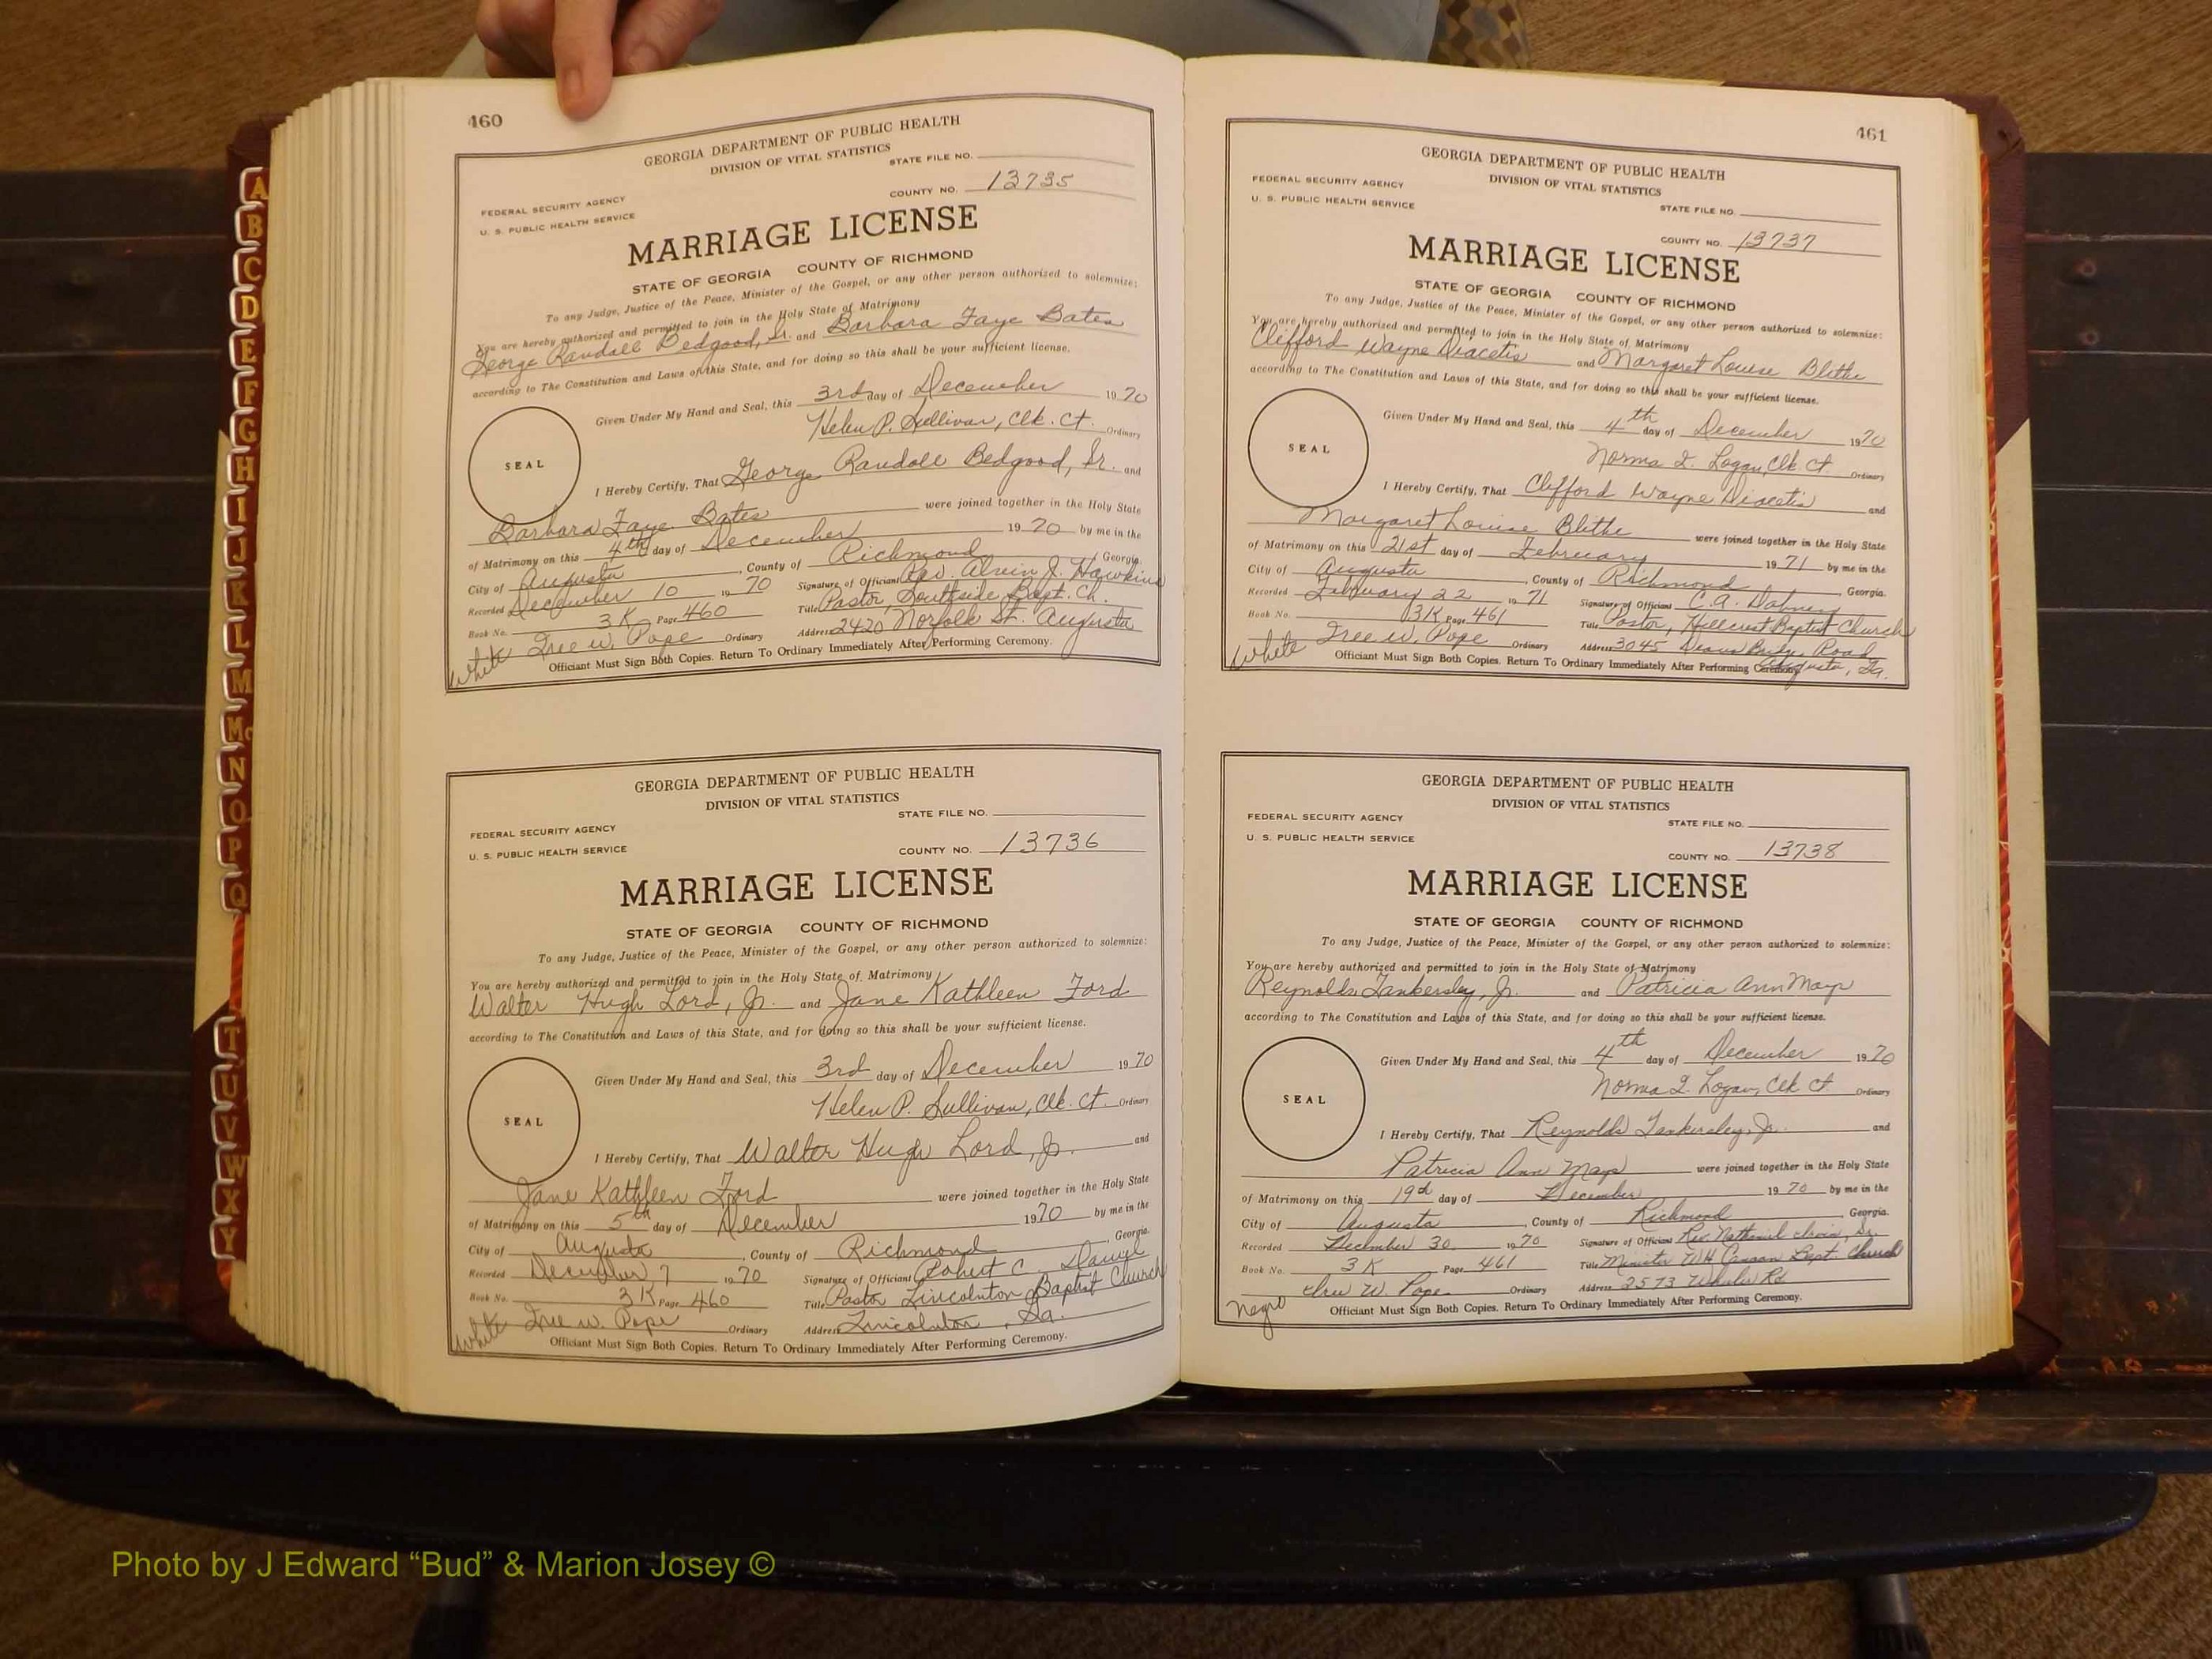 460
GEORGIA DEPARTMENT OF PUBLIC HEALTH
DIVISION OF VITAL STATISTICS
STATE FILE NO.
COUNTY NO. 13735
FEDERAL SECURITY AGENCY
U. S. PUBLIC HEALTH SERVICE
MARRIAGE LICENSE
STATE OF GEORGIA COUNTY OF RICHMOND
To any Judge, Justice of the Peace, Minister of the Gospel, or any other person authorized to solemnize:
You are hereby authorized and permitted to join in the Holy State of Matrimony
George Randall Bedgood, Sr. and Barbara Faye Bates
according to The Constitution and Laws of this State, and for doing so this shall be your sufficient license.
Given Under My Hand and Seal, this 3rd day of December 1970
Helen P. Sullivan, Clk. Ct. Ordinary
SEAL
I Hereby Certify, That George Randall Bedgood, Sr. and
Barbara Faye Bates were joined together in the Holy State
of Matrimony on this 4th day of December 1970 by me in the
City of Augusta, County of Richmond, Georgia.
Recorded December 10 1970 Signature of Official Rev. Alvin J. Hawkins
Book No. 3K Page 460 Title Pastor, Southside Bapt. Ch.
Tree W. Pope Ordinary Address 2420 Norfolk St. Augusta
White Officiant Must Sign Both Copies. Return To Ordinary Immediately After Performing Ceremony.
GEORGIA DEPARTMENT OF PUBLIC HEALTH
DIVISION OF VITAL STATISTICS
STATE FILE NO.
FEDERAL SECURITY AGENCY
U. S. PUBLIC HEALTH SERVICE
COUNTY NO. 13736
MARRIAGE LICENSE
STATE OF GEORGIA COUNTY OF RICHMOND
To any Judge, Justice of the Peace, Minister of the Gospel, or any other person authorized to solemnize:
You are hereby authorized and permitted to join in the Holy State of Matrimony
Walter Hugh Lord, Jr. and Jane Kathleen Ford
according to The Constitution and Laws of this State, and for doing so this shall be your sufficient license.
Given Under My Hand and Seal, this 3rd day of December 1970
Helen P. Sullivan, Clk. Ct. Ordinary
SEAL
I Hereby Certify, That Walter Hugh Lord, Jr. and
Jane Kathleen Ford were joined together in the Holy State
of Matrimony on this 5th day of December 1970 by me in the
City of Augusta, County of Richmond, Georgia.
Recorded December 7 1970 Signature of Officiant Robert C.
Book No. 3K Page 460 Title Pastor Lincolnton Baptist Church
Tree W. Pope Ordinary Address Lincolnton, Ga.
White Officiant Must Sign Both Copies. Return To Ordinary Immediately After Performing Ceremony.
461
GEORGIA DEPARTMENT OF PUBLIC HEALTH
DIVISION OF VITAL STATISTICS
FEDERAL SECURITY AGENCY
U. S. PUBLIC HEALTH SERVICE
STATE FILE NO.
COUNTY NO. 13737
MARRIAGE LICENSE
STATE OF GEORGIA COUNTY OF RICHMOND
To any Judge, Justice of the Peace, Minister of the Gospel, or any other person authorized to solemnize:
You are hereby authorized and permitted to join in the Holy State of Matrimony
Clifford Wayne Diacetis and Margaret Louise Blithe
according to The Constitution and Laws of this State, and for doing so this shall be your sufficient license.
Given Under My Hand and Seal, this 4th day of December 1970
Norma I. Logan, Clk. Ct. Ordinary
SEAL
I Hereby Certify, That Clifford Wayne Diacetis and
Margaret Louise Blithe were joined together in the Holy State
of Matrimony on this 21st day of February 1971 by me in the
City of Augusta, County of Richmond, Georgia.
Recorded February 22 1971 Signature of Officiant C.A. Dabney
Book No. 3K Page 461 Title Pastor, Hillcrest Baptist Church
Tree W. Pope Ordinary Address 3045 Deans Bridge Road
White Officiant Must Sign Both Copies. Return To Ordinary Immediately After Performing Ceremony. Augusta, Ga.
GEORGIA DEPARTMENT OF PUBLIC HEALTH
DIVISION OF VITAL STATISTICS
FEDERAL SECURITY AGENCY
STATE FILE NO.
U. S. PUBLIC HEALTH SERVICE
COUNTY NO. 13738
MARRIAGE LICENSE
STATE OF GEORGIA COUNTY OF RICHMOND
To any Judge, Justice of the Peace, Minister of the Gospel, or any other person authorized to solemnize:
You are hereby authorized and permitted to join in the Holy State of Matrimony
Reynolds Tankersley, Jr. and Patricia Ann Mays
according to The Constitution and Laws of this State, and for doing so this shall be your sufficient license.
Given Under My Hand and Seal, this 4th day of December 1970
Norma I. Logan, Clk Ct. Ordinary
SEAL
I Hereby Certify, That Reynolds Tankersley, Jr. and
Patricia Ann Mays were joined together in the Holy State
of Matrimony on this 19th day of December 1970 by me in the
City of Augusta, County of Richmond, Georgia.
Recorded December 30 1970 Signature of Officiant Rev. Nathaniel Irvin, Sr.
Book No. 3K Page 461 Title Minister Canaan Bapt. Church
W. Pope Ordinary Address 2573 Wheeler Rd
Negro Officiant Must Sign Both Copies. Return To Ordinary Immediately After Performing Ceremony.
A
B
C
D
E
F
G
H
I
J
K
L
M
Mc
N
O
P
Q
T
U
V
W
X
Y
Photo by J Edward “Bud” & Marion Josey ©